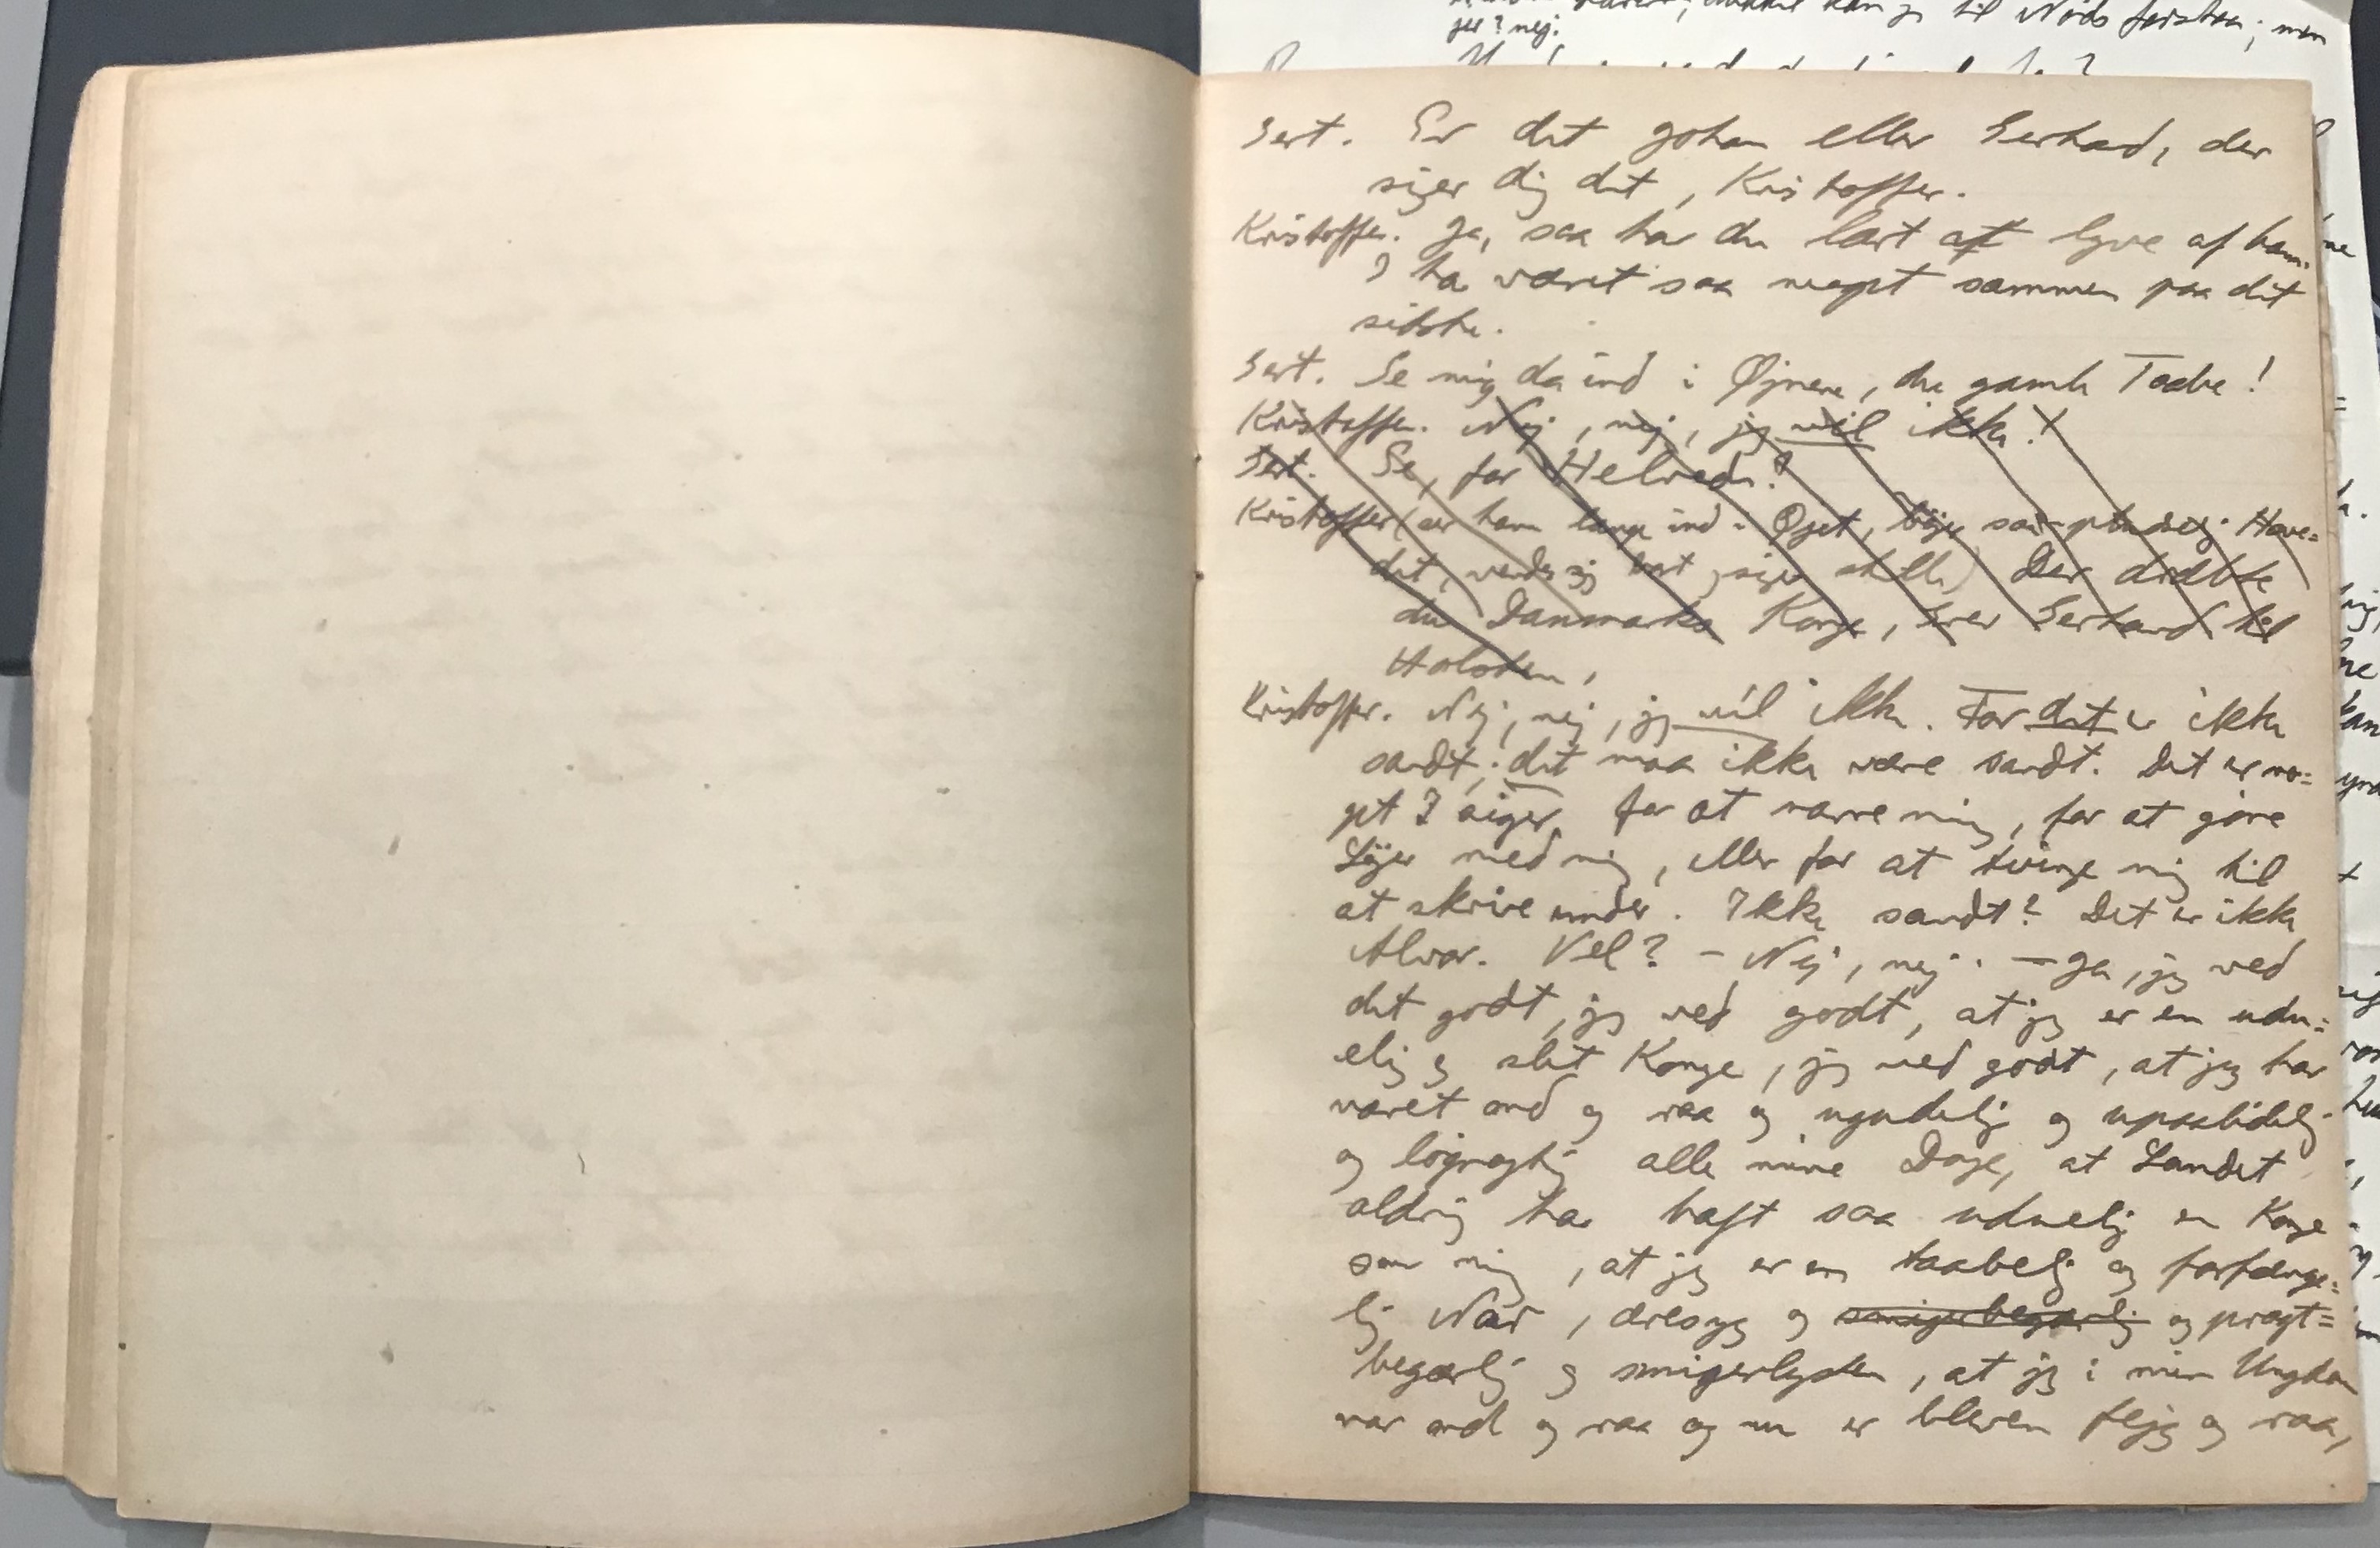 jer? nej.
Gert. Er det Johan eller Gerhard, der
siger dig det, Kristoffer.
Kristoffer. Ja, saa har du lært at lyve af ham.
I har været saa meget sammen paa det
sidste.
Gert. Se mig da ind i Øjnene, du gamle Taabe!
Kristoffer. Nej, nej, jeg vil ikke!
Gert. Se, for Helvede!
Kristoffer (ser ham længe ind i Øjet, bøjer saa pludselig Hove=
det, vender sig bort og siger stille) Der dræbte
du Danmarks Konge, Grev Gerhard til
Holsten,
Kristoffer. Nej, nej, jeg vil ikke. For det er ikke
sandt; det maa ikke være sandt. Det er no=
get I siger for at narre mig, for at gøre
Løjer med mig, eller for at tvinge mig til
at skrive under. Ikke sandt? Det er ikke
Alvor. Vel? – Nej, nej. – Ja, jeg ved
det godt, jeg ved godt, at jeg er en udu=
elig og slet Konge, jeg ved godt, at jeg har
været ond og raa og ugudelig og upaalidelig
og løgnagtig alle mine Dage, at Landet
aldrig har haft saa uduelig en Konge
som mig, at jeg er en taabelig og forfænge=
lig Nar, æresyg og smigerbegærlig og pragt=
begærlig og smigerlysten, at jeg i min Ungdom
var ond og raa og nu er bleven fejg og raa,